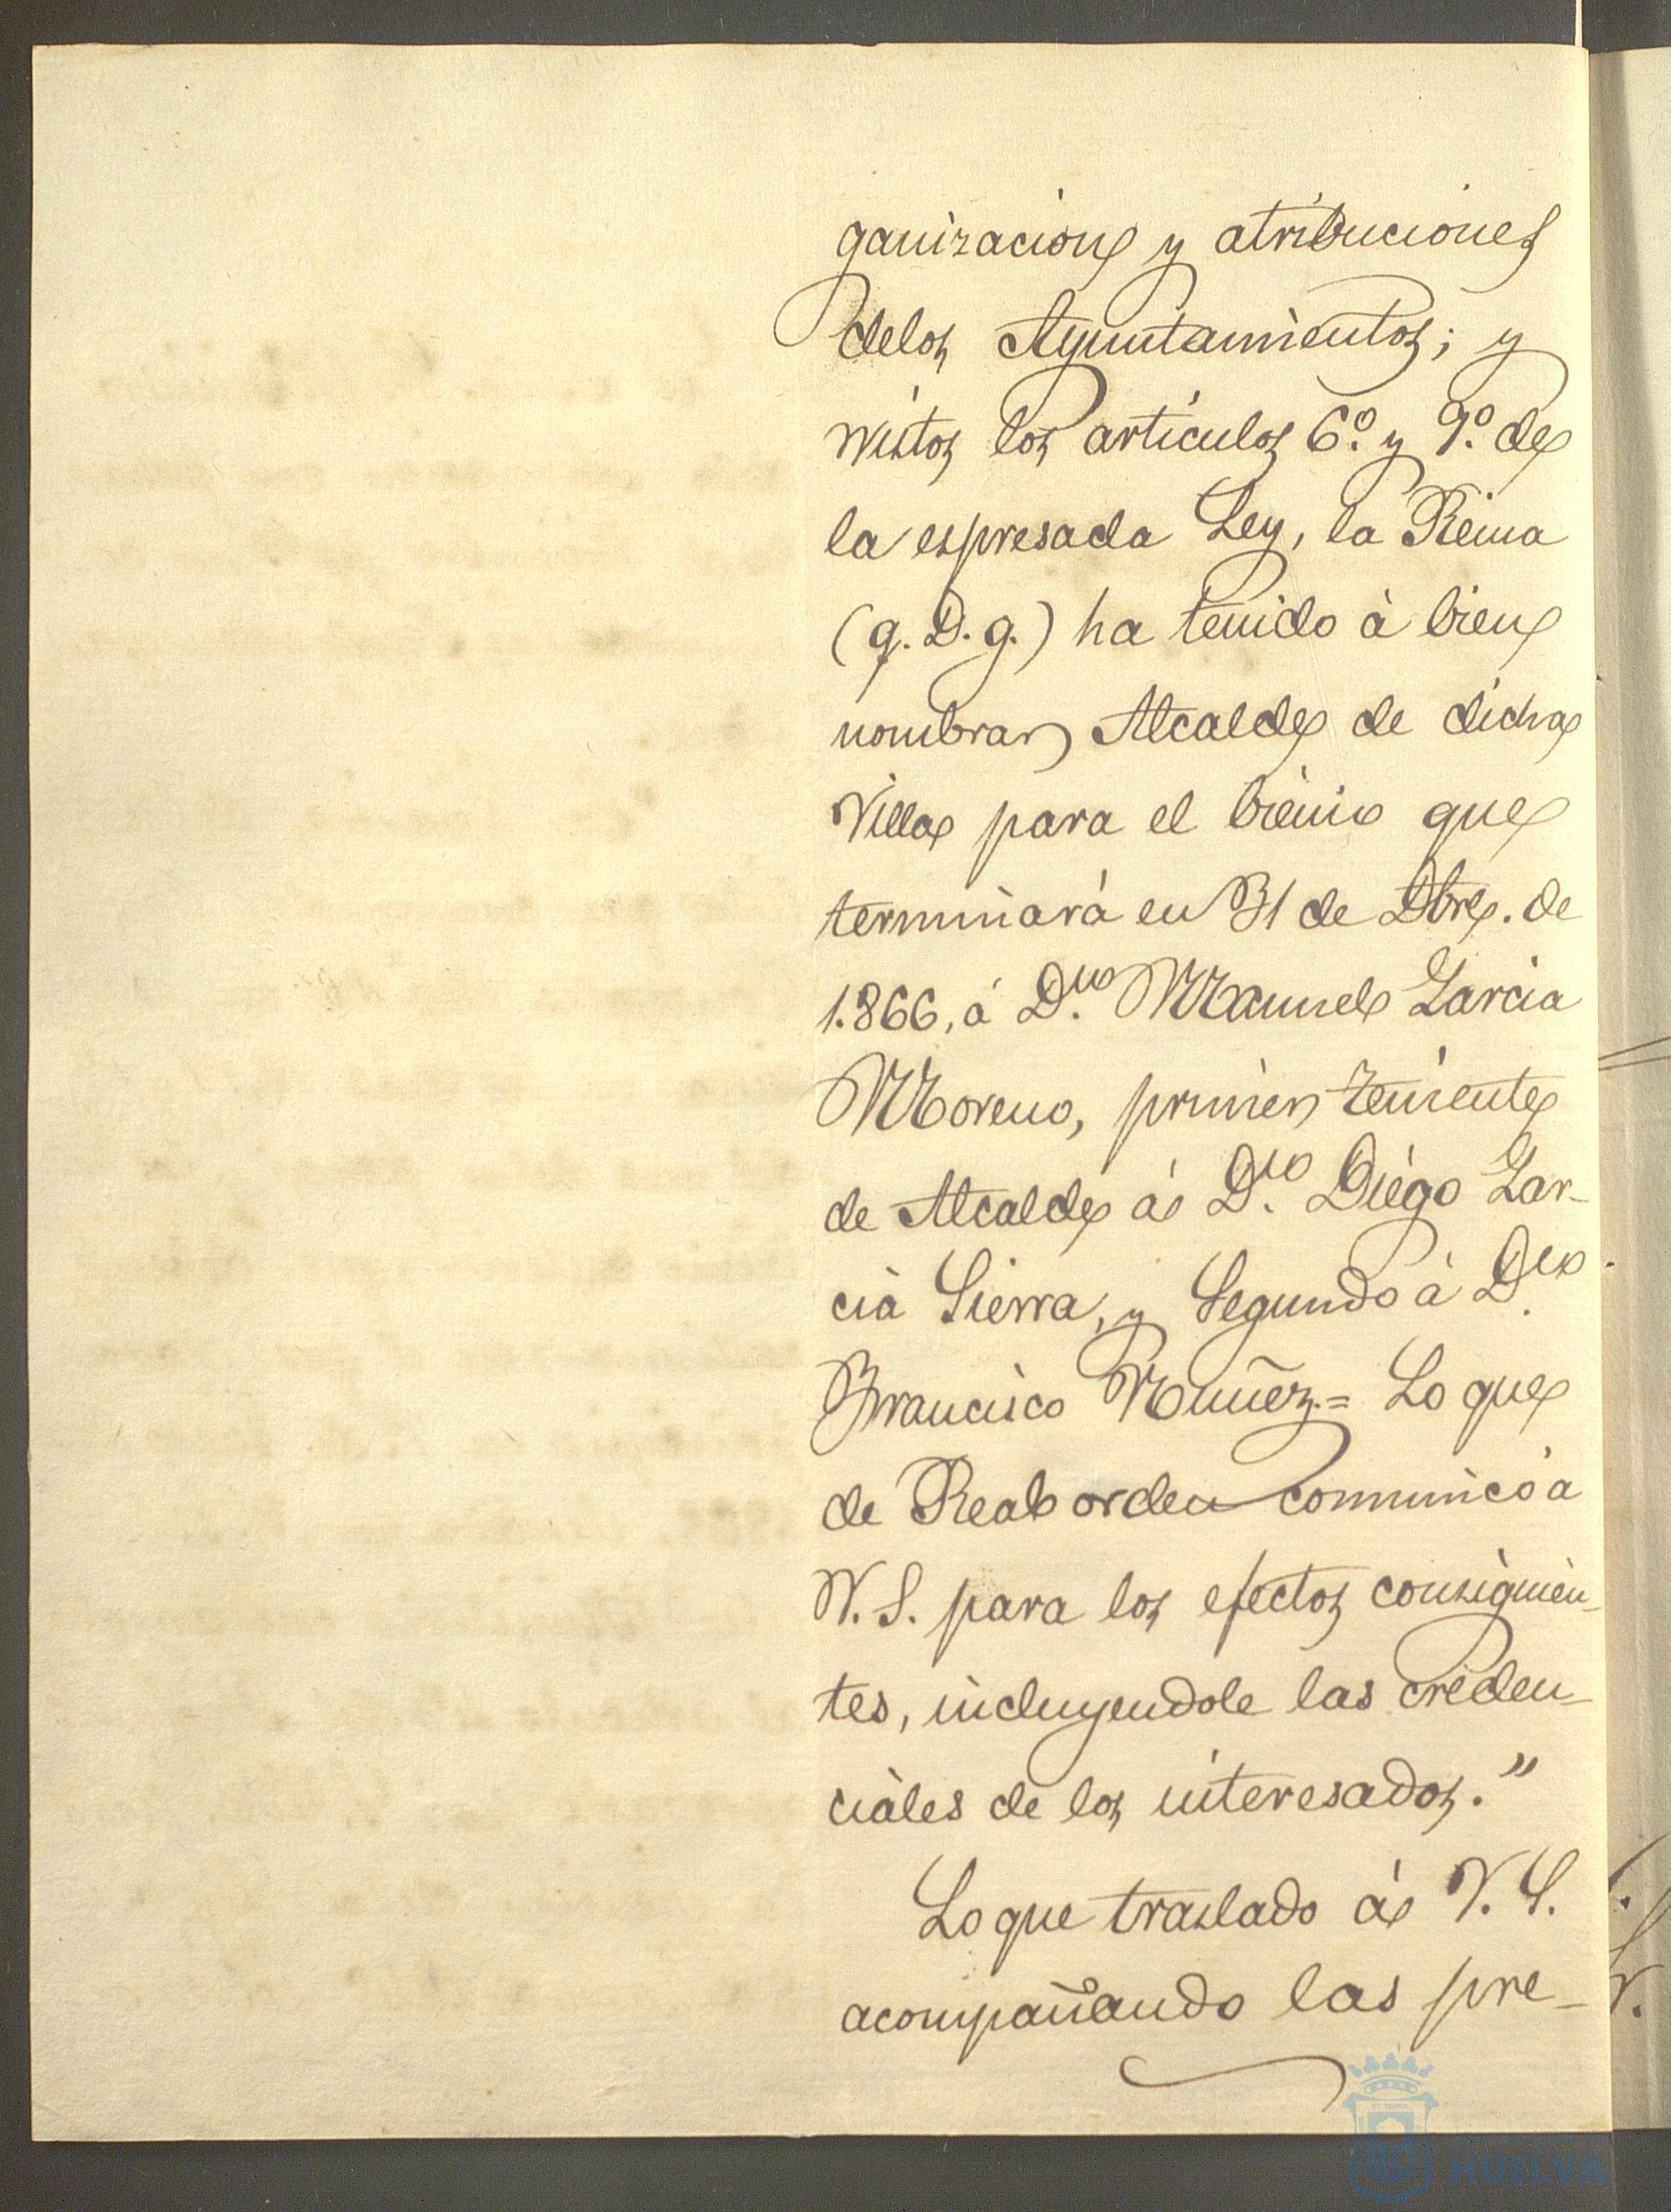 ganizacion y atribuciones
delos Ayuntamientos; y
vistos los articulos 6.º y 9.º de
la espresada Ley, la Reina
(q. D. g.) ha tenido à bien
nombrar Alcalde de dicha
Villa para el biénio que
terminará en 31 de Dbre. de
1.866, á D.n Manuel Garcia
Moreno, primer teniente
de Alcalde á D.n Diego Gar-
cia Sierra, y Segundo à D.n
Francisco Muñoz.= Lo que
de Real orden comunicó a
V. S. para los efectos consiguien-
tes, incluyendole las creden-
ciales de los interesados."
Lo que traslado á V. S.
acompañando las pre-
HUELVA